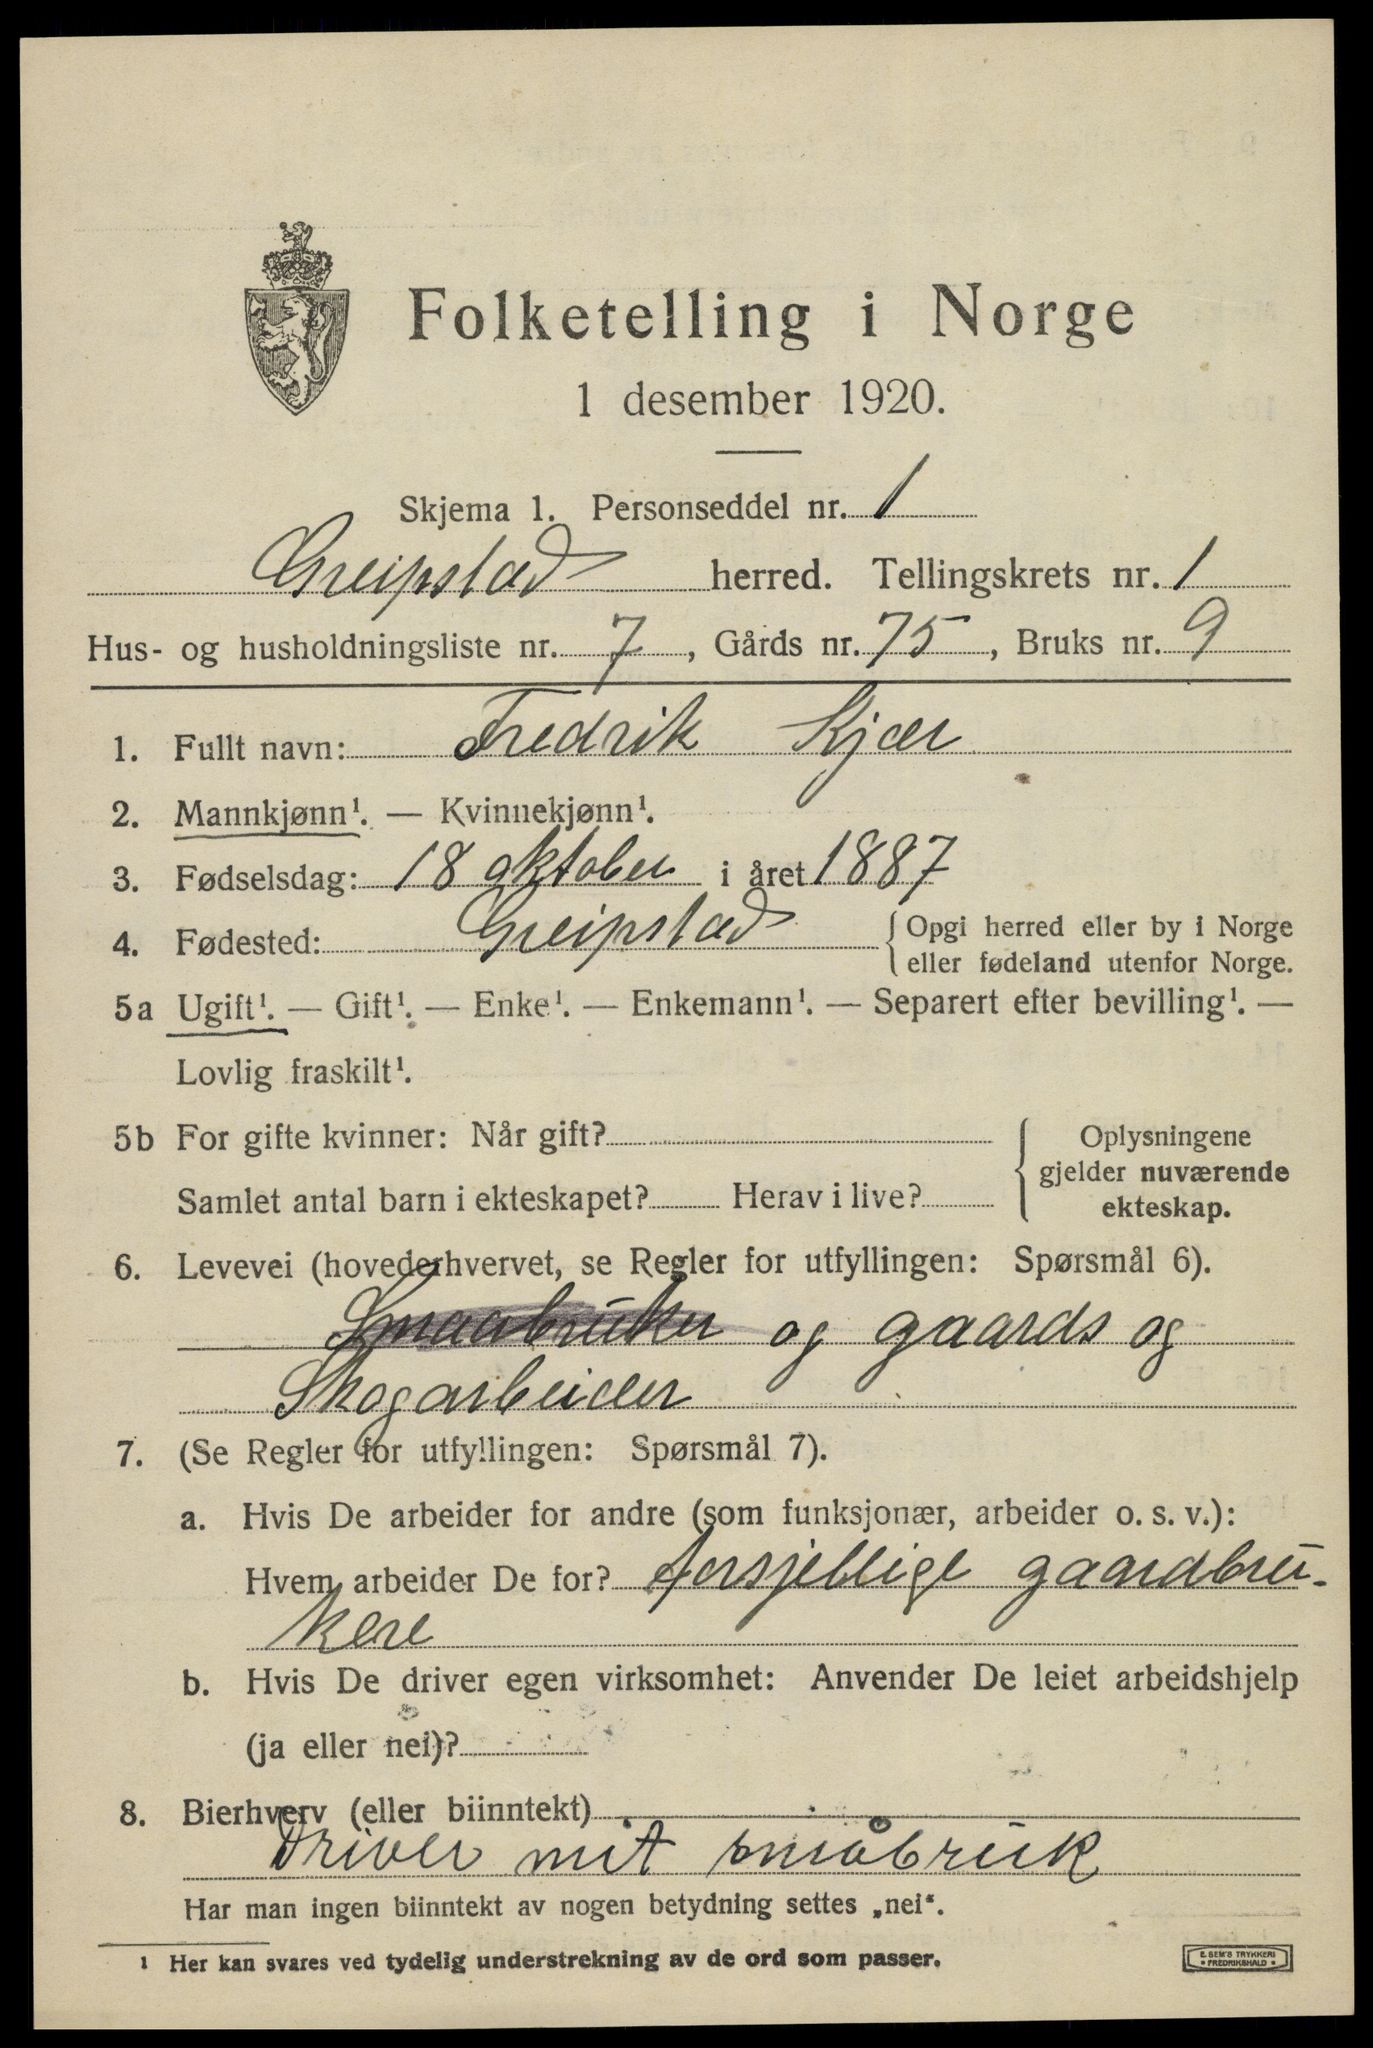 Folketelling i Norge
1 desember 1920.
Skjema 1. Personseddel nr. 1
Greipstad herred. Tellingskrets nr. 1
Hus- og husholdningsliste nr. 7, Gårds nr. 75, Bruks nr. 9
1. Fullt navn: Fredrik Kjær
2. Mannkjønn¹. — Kvinnekjønn¹.
3. Fødselsdag: 18 oktober i året 1887
4. Fødested: Greipstad { Opgi herred eller by i Norge
eller fødeland utenfor Norge.
5a Ugift¹. — Gift¹. — Enke¹. — Enkemann¹. — Separert efter bevilling¹. —
Lovlig fraskilt¹.
5b For gifte kvinner: Når gift?
Samlet antal barn i ekteskapet? Herav i live?
{ Oplysningene
gjelder nuværende
ekteskap.
6. Levevei (hovederhvervet, se Regler for utfyllingen: Spørsmål 6).
Smaabruker og gaards og
Skogarbeider
7. (Se Regler for utfyllingen: Spørsmål 7).
a. Hvis De arbeider for andre (som funksjonær, arbeider o. s. v.):
Hvem arbeider De for? forsjellige gaardbru-
kere
b. Hvis De driver egen virksomhet: Anvender De leiet arbeidshjelp
(ja eller nei)?
8. Bierhverv (eller biinntekt)
Driver mit småbruk
Har man ingen biinntekt av nogen betydning settes „nei“.
¹ Her kan svares ved tydelig understrekning av de ord som passer.
E. SEM'S TRYKKERI
• FREDRIKSHALD •